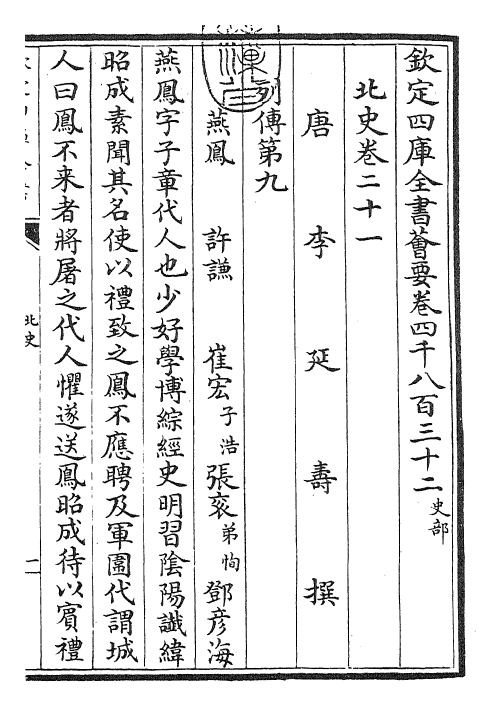 欽定四庫全書薈要卷四千八百三十二史部
北史卷二十一
唐李延壽撰
列傳第九
燕鳳 許謙 崔宏子浩 張衮弟恂 鄧彥海
燕鳳字子章代人也少好學博綜經史明習陰陽讖緯
昭成素聞其名使以禮致之鳳不應聘及軍圍代謂城
人曰鳳不来者將屠之代人懼遂送鳳昭成待以賓禮
北史